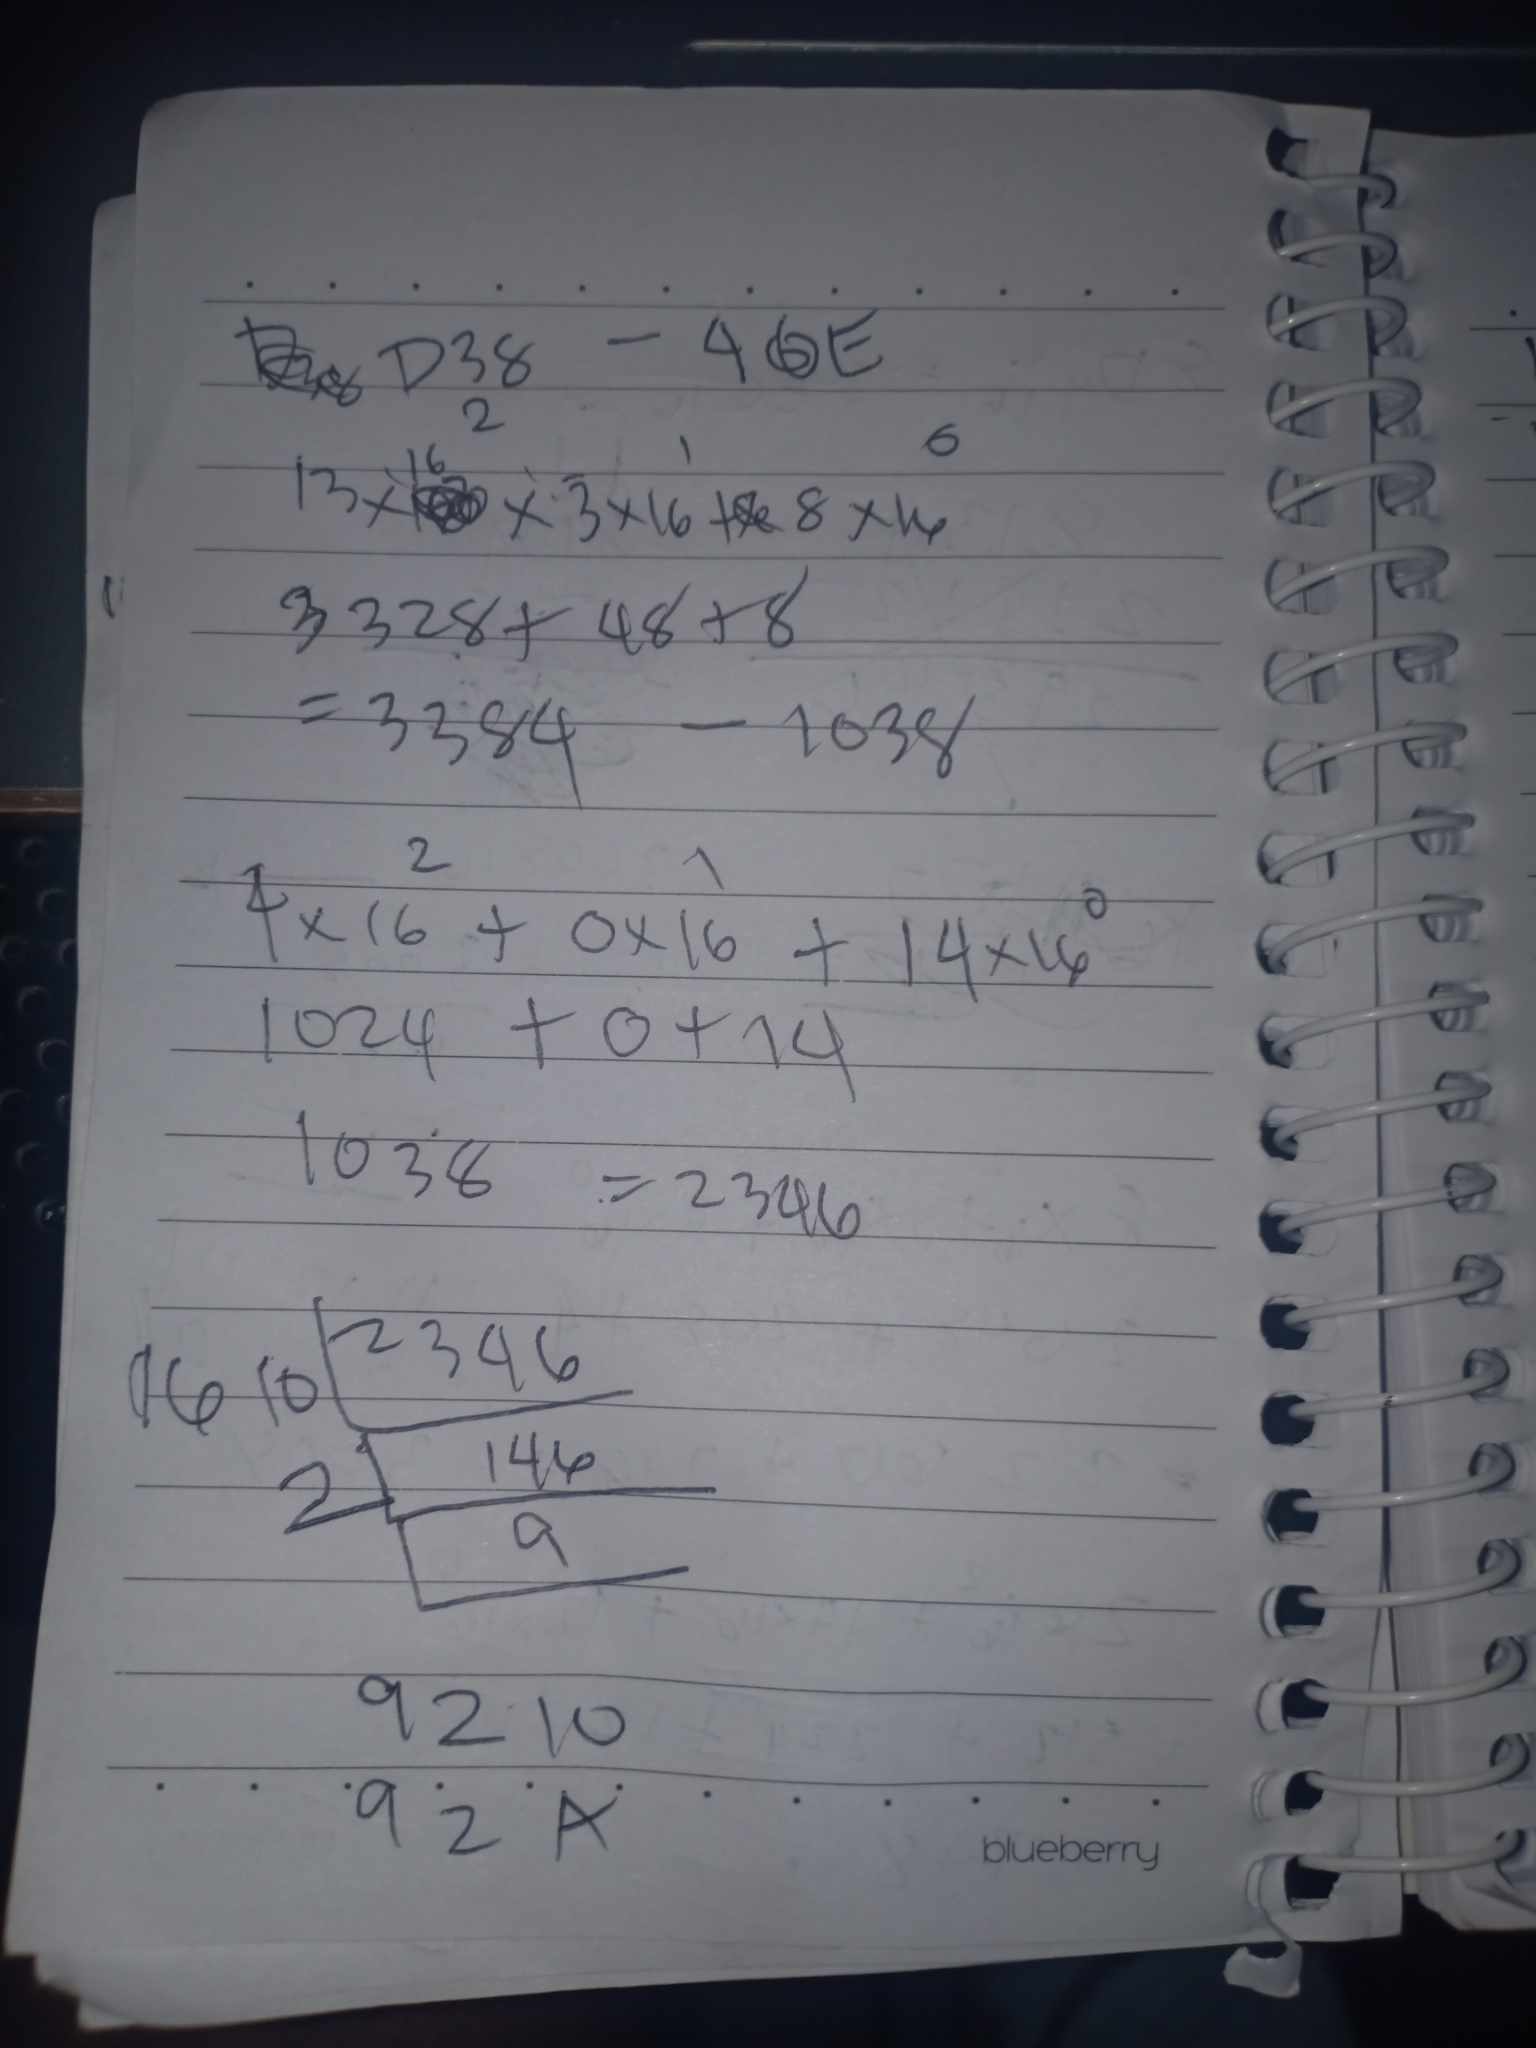 D38 - 40E
13 x 16² x 3 x 16¹ + 8 x 16⁰
3328 + 48 + 8
= 3384 - 1038
4 x 16² + 0 x 16¹ + 14 x 16⁰
1024 + 0 + 14
1038 = 2346
16 10 2346
2 146
9
9 2 10
9 2 A
blueberry